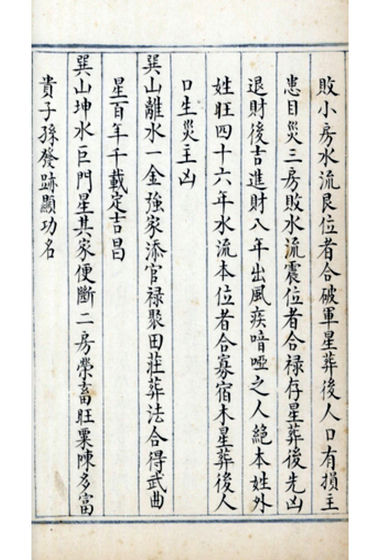 敗小房水流艮位者合破軍星葬後人口有損主
患目災三房敗水流震位者合禄存星葬後先凶
退財後吉進財八年出風疾喑啞之人絕本姓外
姓旺四十六年水流本位者合寡宿木星葬後人
口生災主凶
巽山離水一金強家添官禄聚田莊葬法合得武曲
星百年千載定吉昌
巽山坤水巨門星其家便斷二房榮畜旺粟陳多富
貴子孫發跡顯功名